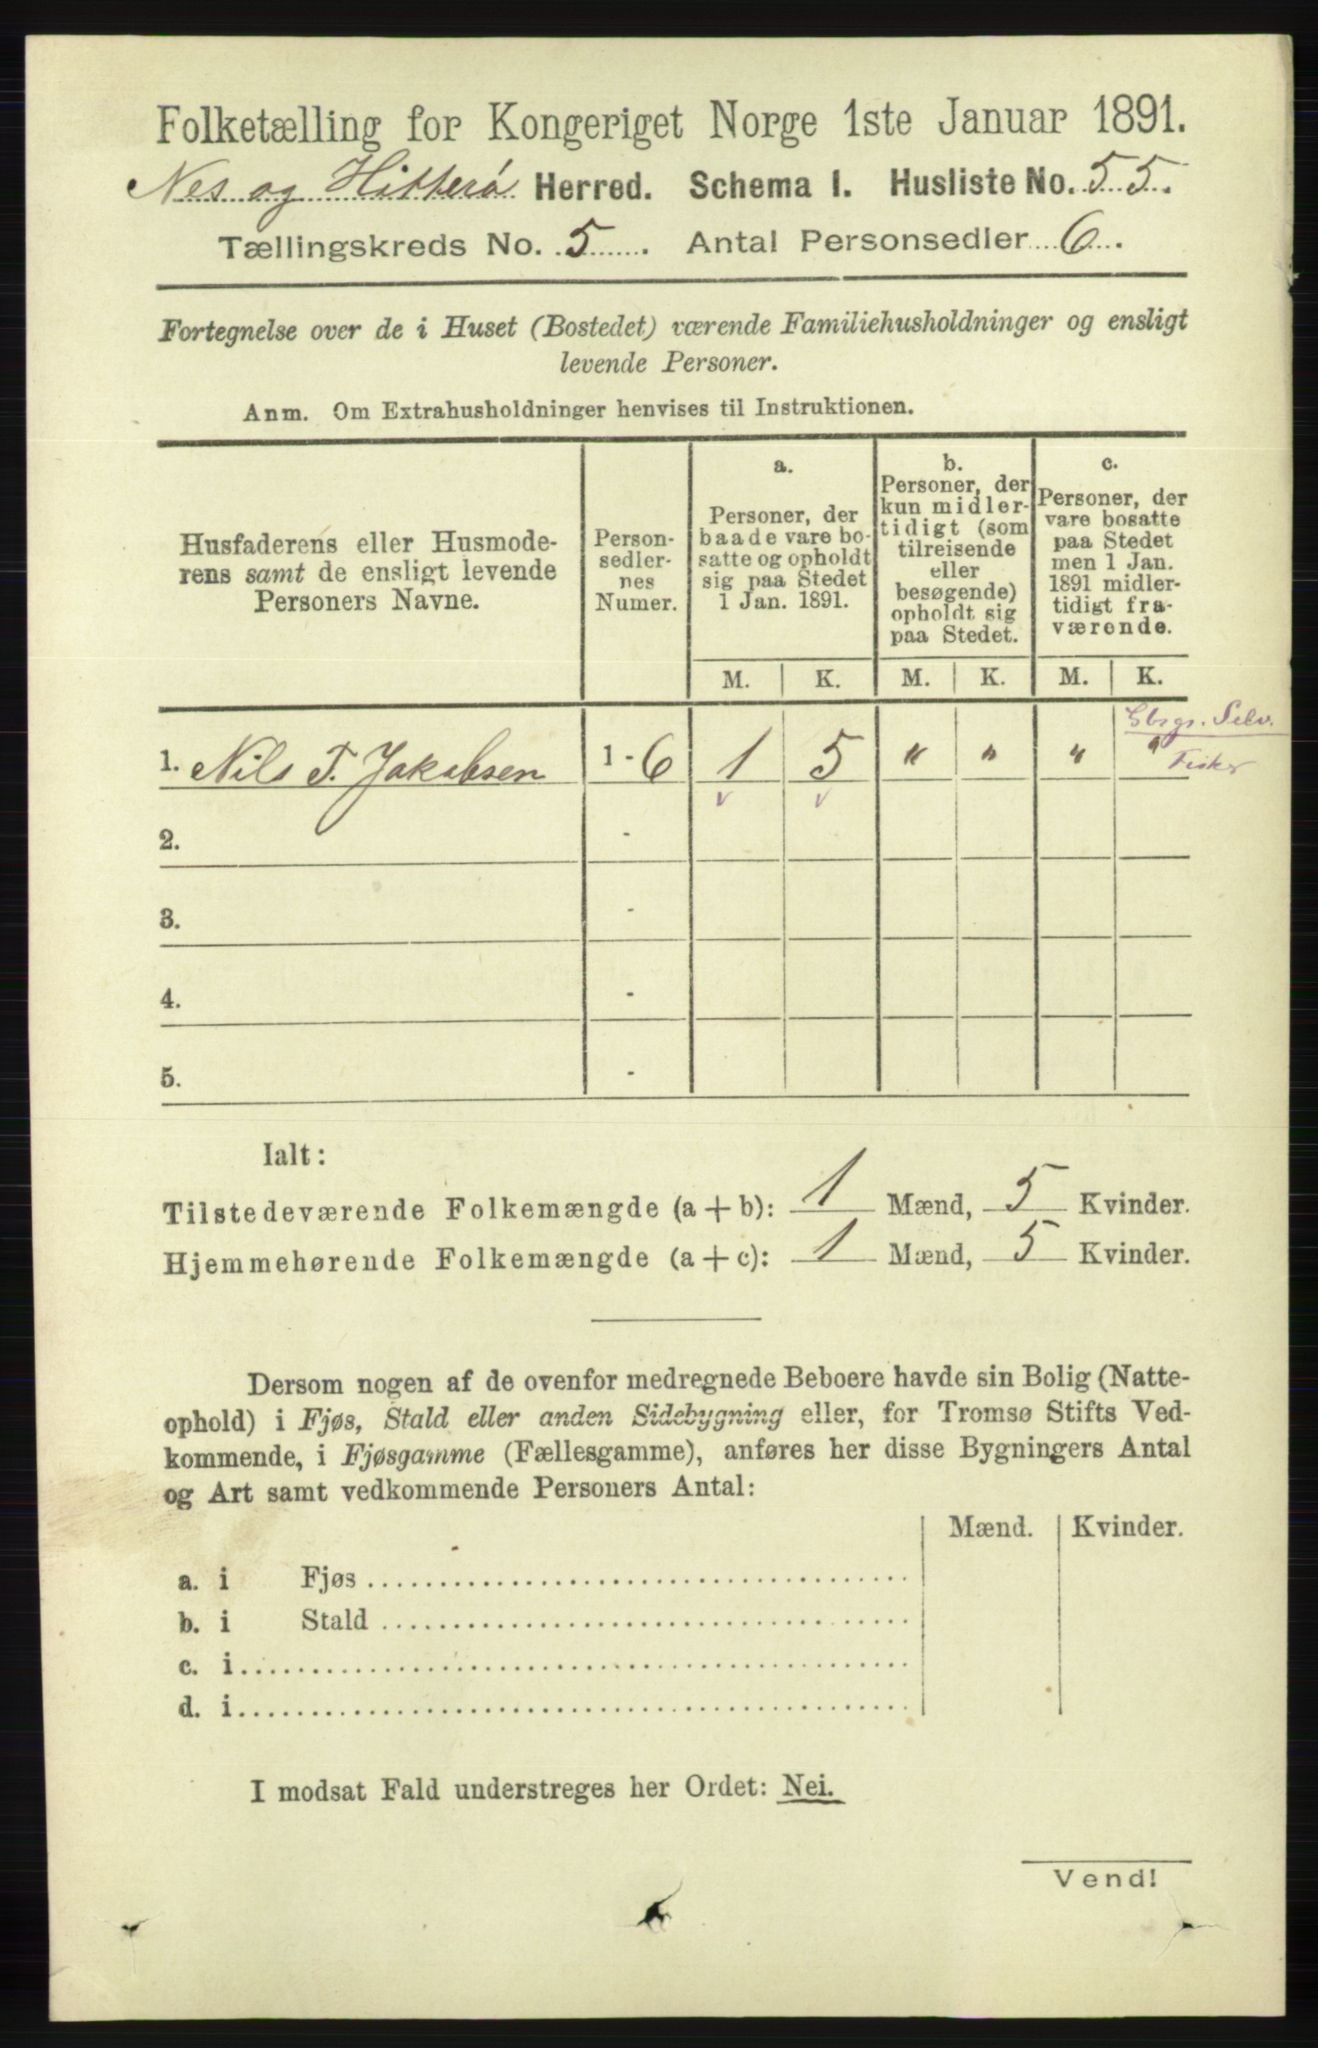 Folketælling for Kongeriget Norge 1ste Januar 1891.
Nes og Hitterø Herred. Schema I. Husliste No. 55.
Tællingskreds No. 5. Antal Personsedler 6.
Fortegnelse over de i Huset (Bostedet) værende Familiehusholdninger og ensligt
levende Personer.
Anm. Om Extrahusholdninger henvises til Instruktionen.
Husfaderens eller Husmode-
rens samt de ensligt levende
Personers Navne.
Person-
sedler-
nes
Numer.
a.
Personer, der
baade vare bo-
satte og opholdt
sig paa Stedet
1 Jan. 1891.
b.
Personer, der
kun midler-
tidigt (som
tilreisende
eller
besøgende)
opholdt sig
paa Stedet.
c.
Personer, der
vare bosatte
paa Stedet
men 1 Jan.
1891 midler-
tidigt fra-
værende.
M. K. M. K. M. K.
Gbrgr. Selv.
1. Nils T. Jakobsen 1 - 6 1 5 " " " "
Fisker
2. -
3. -
4. -
5. -
Ialt:
Tilstedeværende Folkemængde (a + b): 1 Mænd, 5 Kvinder.
Hjemmehørende Folkemængde (a + c): 1 Mænd, 5 Kvinder.
Dersom nogen af de ovenfor medregnede Beboere havde sin Bolig (Natte-
ophold) i Fjøs, Stald eller anden Sidebygning eller, for Tromsø Stifts Ved-
kommende, i Fjøsgamme (Fællesgamme), anføres her disse Bygningers Antal
og Art samt vedkommende Personers Antal:
Mænd. Kvinder.
a. i Fjøs
b. i Stald
c. i
d. i
I modsat Fald understreges her Ordet: Nei.
Vend!